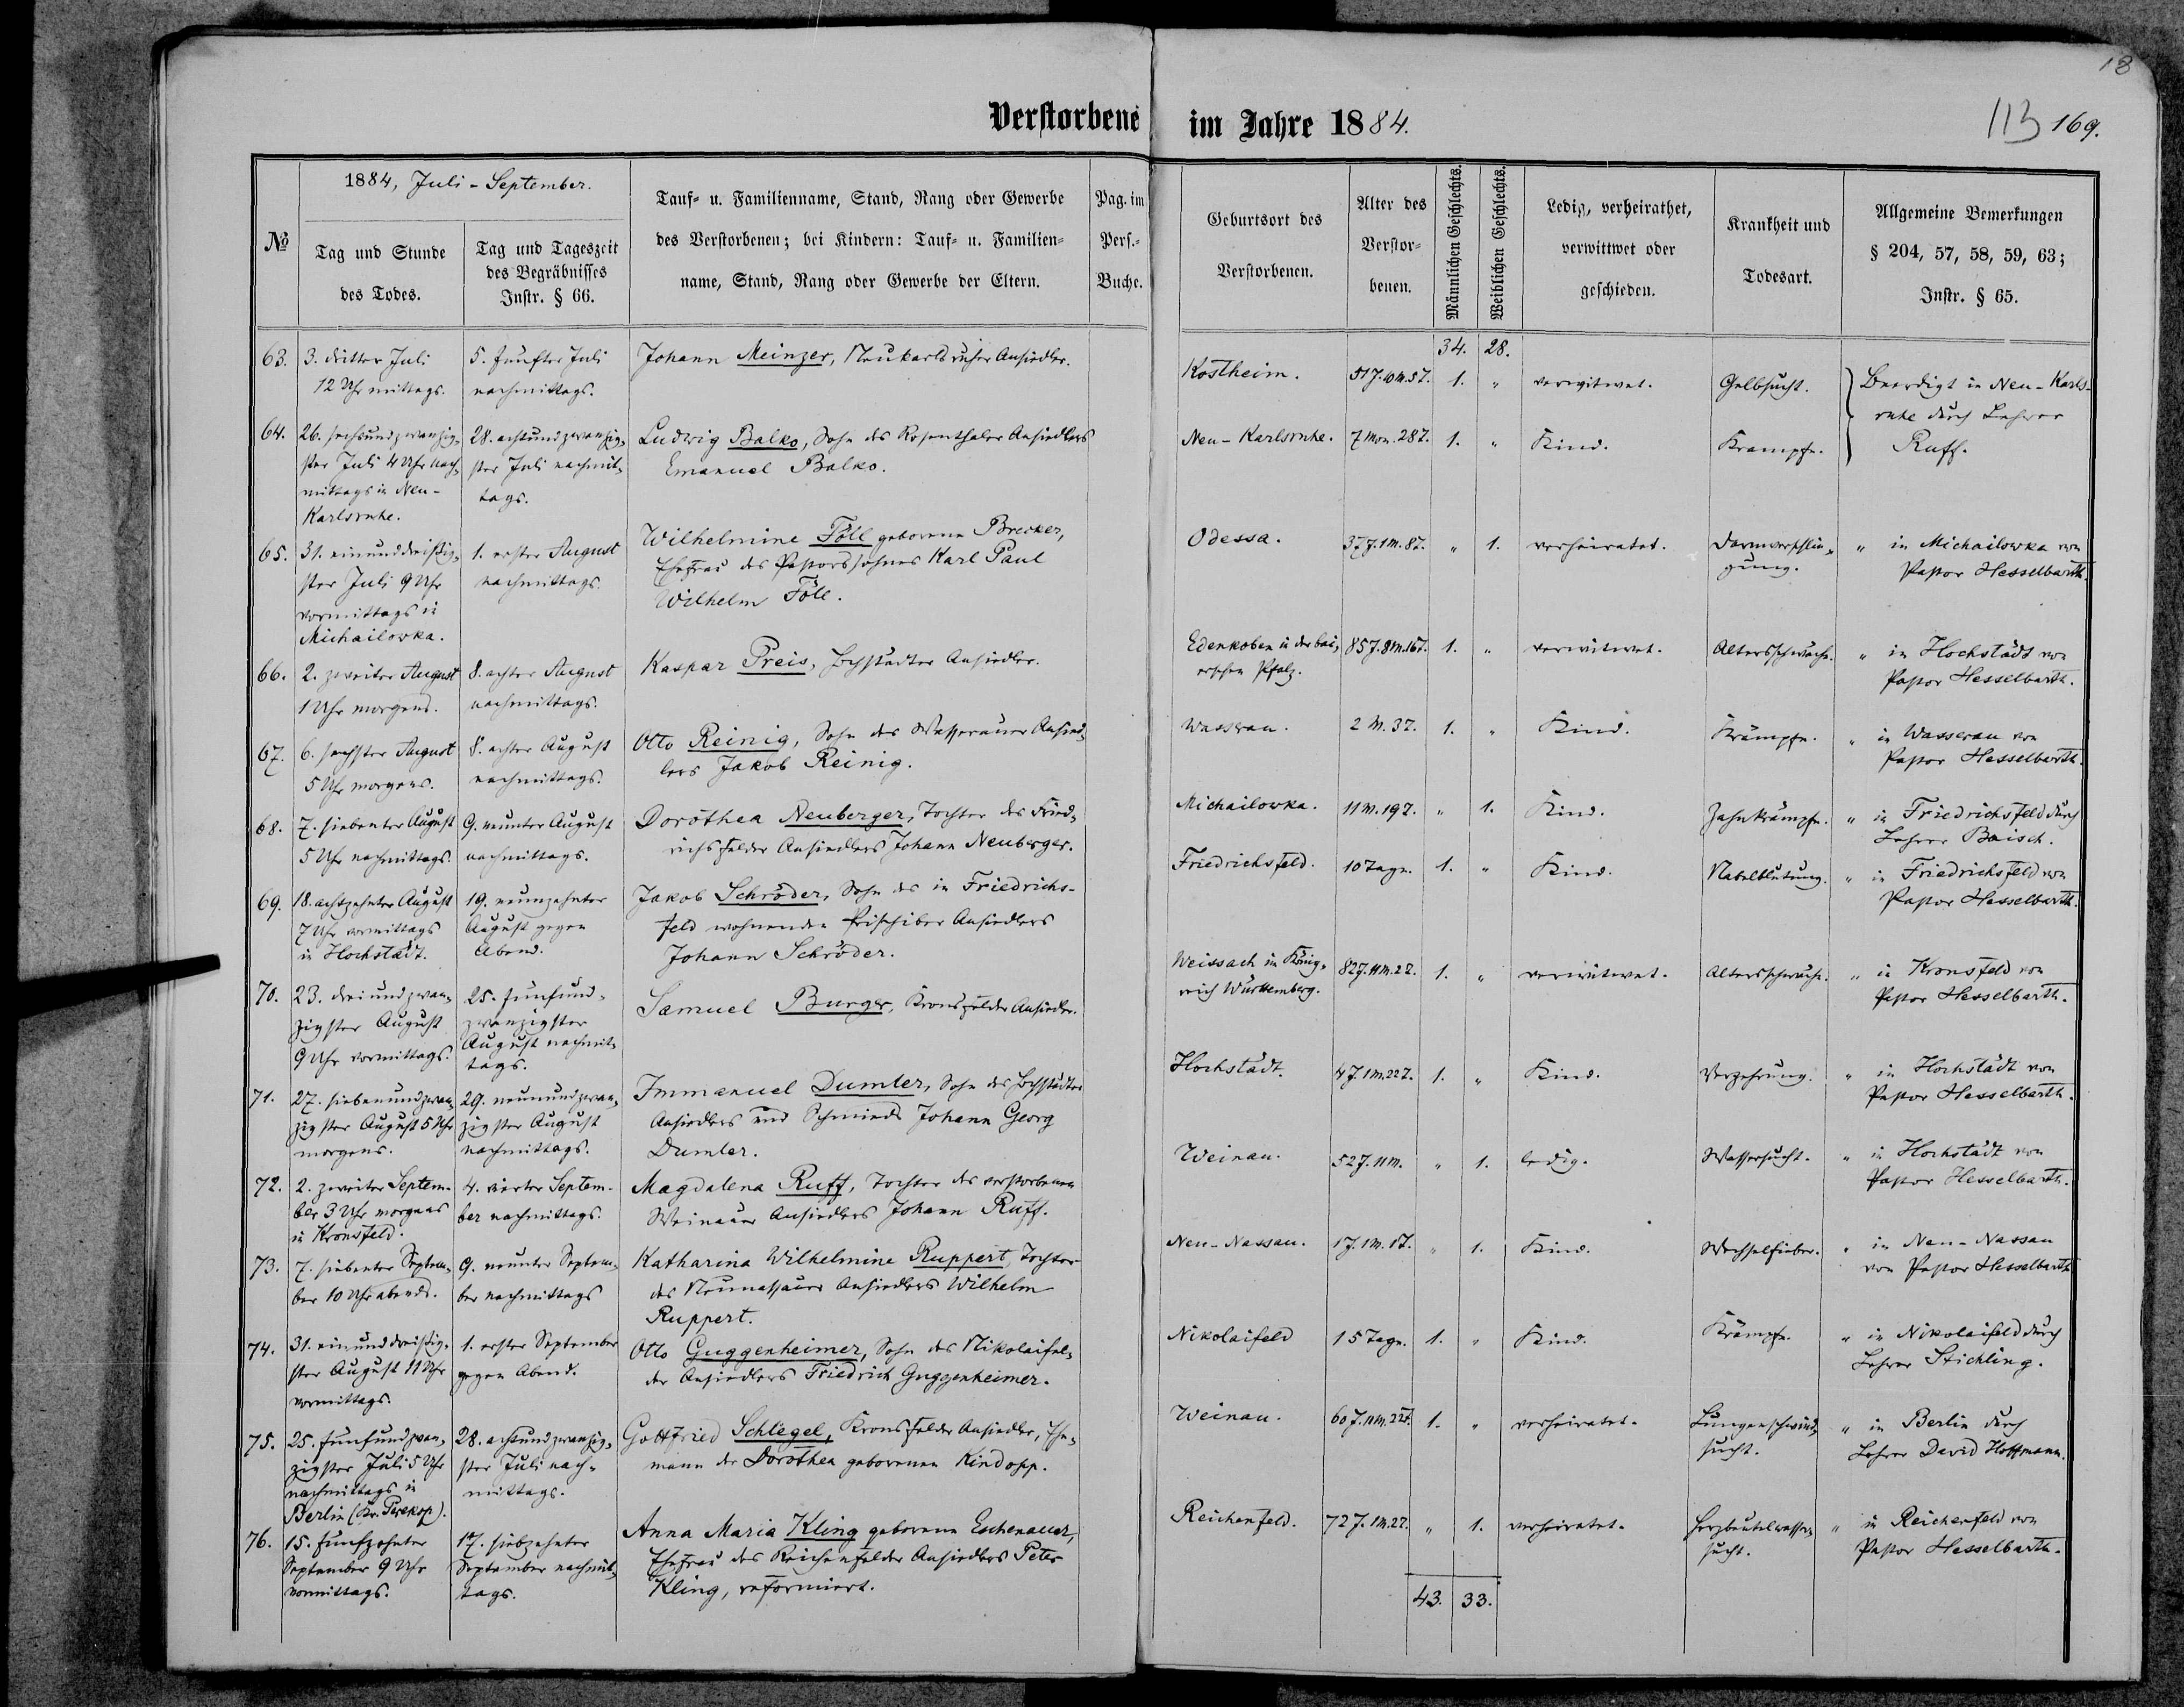 18
Verstorbene im Jahre 1884.
113 169.
1884, Juli - September.
№
Tag und Stunde
des Todes.
Tag und Tageszeit
des Begräbnisses
Instr. § 66.
Tauf- u. Familienname, Stand, Rang oder Gewerbe
des Verstorbenen; bei Kindern: Tauf- u. Familien-
name, Stand, Rang oder Gewerbe der Eltern.
Pag. im
Pers.-
Buche.
Geburtsort des
Verstorbenen.
Alter des
Verstor-
benen.
Männlichen Geschlechts.
Weiblichen Geschlechts.
Ledig, verheirathet,
verwittwet oder
geschieden.
Krankheit und
Todesart.
Allgemeine Bemerkungen
§ 204, 57, 58, 59, 63;
Instr. § 65.
34. 28.
63.
3. dritter Juli
12 Uhr mittags.
5. fünfter Juli
nachmittags.
Johann Meinzer, Neukarlsruher Ansiedler.
Kostheim.
51 J. 10 M. 5 T.
1. "
verwitwet.
Gelbsucht.
Beerdigt in Neu-Karls-
ruhe durch Lehrer
Ruff.
64.
26. sechsundzwanzig-
ster Juli 4 Uhr nach-
mittags in Neu-
Karlsruhe.
28. achtundzwanzig-
ster Juli nachmit-
tags.
Ludwig Balko, Sohn des Rosenthaler Ansiedlers
Emanuel Balko.
Neu-Karlsruhe.
7 Mon. 28 T.
1. "
Kind.
Krämpfe.
65.
31. einunddreißig-
ster Juli 9 Uhr
vormittags in
Michailowka.
1. erster August
nachmittags.
Wilhelmine Föll geborene Brecker,
Ehefrau des Pastorsohnes Karl Paul
Wilhelm Föll.
Odessa.
37 J. 1 M. 8 T.
" 1.
verheiratet.
Darmverschlin-
gung.
" in Michailowka von
Pastor Hesselbarth.
66.
2. zweiter August
1 Uhr morgens.
8. achter August
nachmittags.
Kaspar Preis, Hochstädter Ansiedler.
Edenkoben in der bai-
erschen Pfalz.
85 J. 8 M. 16 T.
1. "
verwitwet.
Altersschwäche.
" in Hochstädt von
Pastor Hesselbarth.
67.
6. sechster August
5 Uhr morgens.
8. achter August
nachmittags.
Otto Reinig, Sohn des Wasserauer Ansied-
lers Jakob Reinig.
Wasserau.
2 M. 3 T.
1. "
Kind.
Krämpfe.
" in Wasserau von
Pastor Hesselbarth.
68.
7. siebenter August
5 Uhr nachmittags.
9. neunter August
nachmittags.
Dorothea Neuberger, Tochter des Fried-
richsfelder Ansiedlers Johann Neuberger.
Michailowka.
11 M. 19 T.
" 1.
Kind.
Zahnkrämpfe.
" in Friedrichsfeld durch
Lehrer Baisch.
69.
18. achtzehnter August
7 Uhr vormittags
in Hochstädt.
19. neunzehnter
August gegen
Abend.
Jakob Schröder, Sohn des in Friedrichs-
feld wohnenden Prischiber Ansiedlers
Johann Schröder.
Friedrichsfeld.
10 Tage.
1. "
Kind.
Nabelblutung.
" in Friedrichsfeld von
Pastor Hesselbarth.
70.
23. dreiundzwan-
zigster August
9 Uhr vormittags.
25. fünfund-
zwanzigster
August nachmit-
tags.
Samuel Burger, Kronsfelder Ansiedler.
Weissach im König-
reich Württemberg.
82 J. 11 M. 2 T.
1. "
verwitwet.
Altersschwäche.
" in Kronsfeld von
Pastor Hesselbarth.
71.
27. siebenundzwan-
zigster August 5 Uhr
morgens.
29. neunundzwan-
zigster August
nachmittags.
Immanuel Dumler, Sohn des Hochstädter
Ansiedlers und Schmieds Johann Georg
Dumler.
Hochstädt.
4 J. 1 M. 22 T.
1. "
Kind.
Verzehrung.
" in Hochstädt von
Pastor Hesselbarth.
72.
2. zweiter Septem-
ber 3 Uhr morgens
in Kronsfeld.
4. vierter Septem-
ber nachmittags.
Magdalena Ruff, Tochter des verstorbenen
Weinauer Ansiedlers Johann Ruff.
Weinau.
52 J. 11 M.
" 1.
ledig.
Wassersucht.
" in Hochstädt von
Pastor Hesselbarth.
73.
7. siebenter Septem-
ber 10 Uhr abends.
9. neunter Septem-
ber nachmittags
Katharina Wilhelmine Ruppert, Tochter
des Neunassauer Ansiedlers Wilhelm
Ruppert.
Neu-Nassau.
1 J. 1 M. 1 T.
" 1.
Kind.
Wechselfieber.
" in Neu-Nassau
von Pastor Hesselbarth
74.
31. einunddreißig-
ster August 11 Uhr
vormittags.
1. erster September
gegen Abend.
Otto Guggenheimer, Sohn des Nikolaifel-
der Ansiedlers Friedrich Guggenheimer.
Nikolaifeld
15 Tage.
1. "
Kind.
Krämpfe.
" in Nikolaifeld durch
Lehrer Stichling.
75.
25. fünfundzwan-
zigster Juli 5 Uhr
nachmittags in
Berlin (Kr. Perekop).
28. achtundzwanzig-
ster Juli nach-
mittags.
Gottfried Schlegel, Kronsfelder Ansiedler, Ehe-
mann der Dorothea geborenen Kindopp.
Weinau.
60 J. 11 M. 22 T.
1. "
verheiratet.
Lungenschwind-
sucht.
" in Berlin durch
Lehrer David Hoffmann.
76.
15. fünfzehnter
September 9 Uhr
vormittags.
17. siebzehnter
September nachmit-
tags.
Anna Maria Kling geborene Eschenauer,
Ehefrau des Reichenfelder Ansiedlers Peter
Kling, reformiert.
Reichenfeld.
72 J. 1 M. 2 T.
" 1.
verheiratet.
Herzbeutelwasser-
sucht.
" in Reichenfeld von
Pastor Hesselbarth.
43. 33.